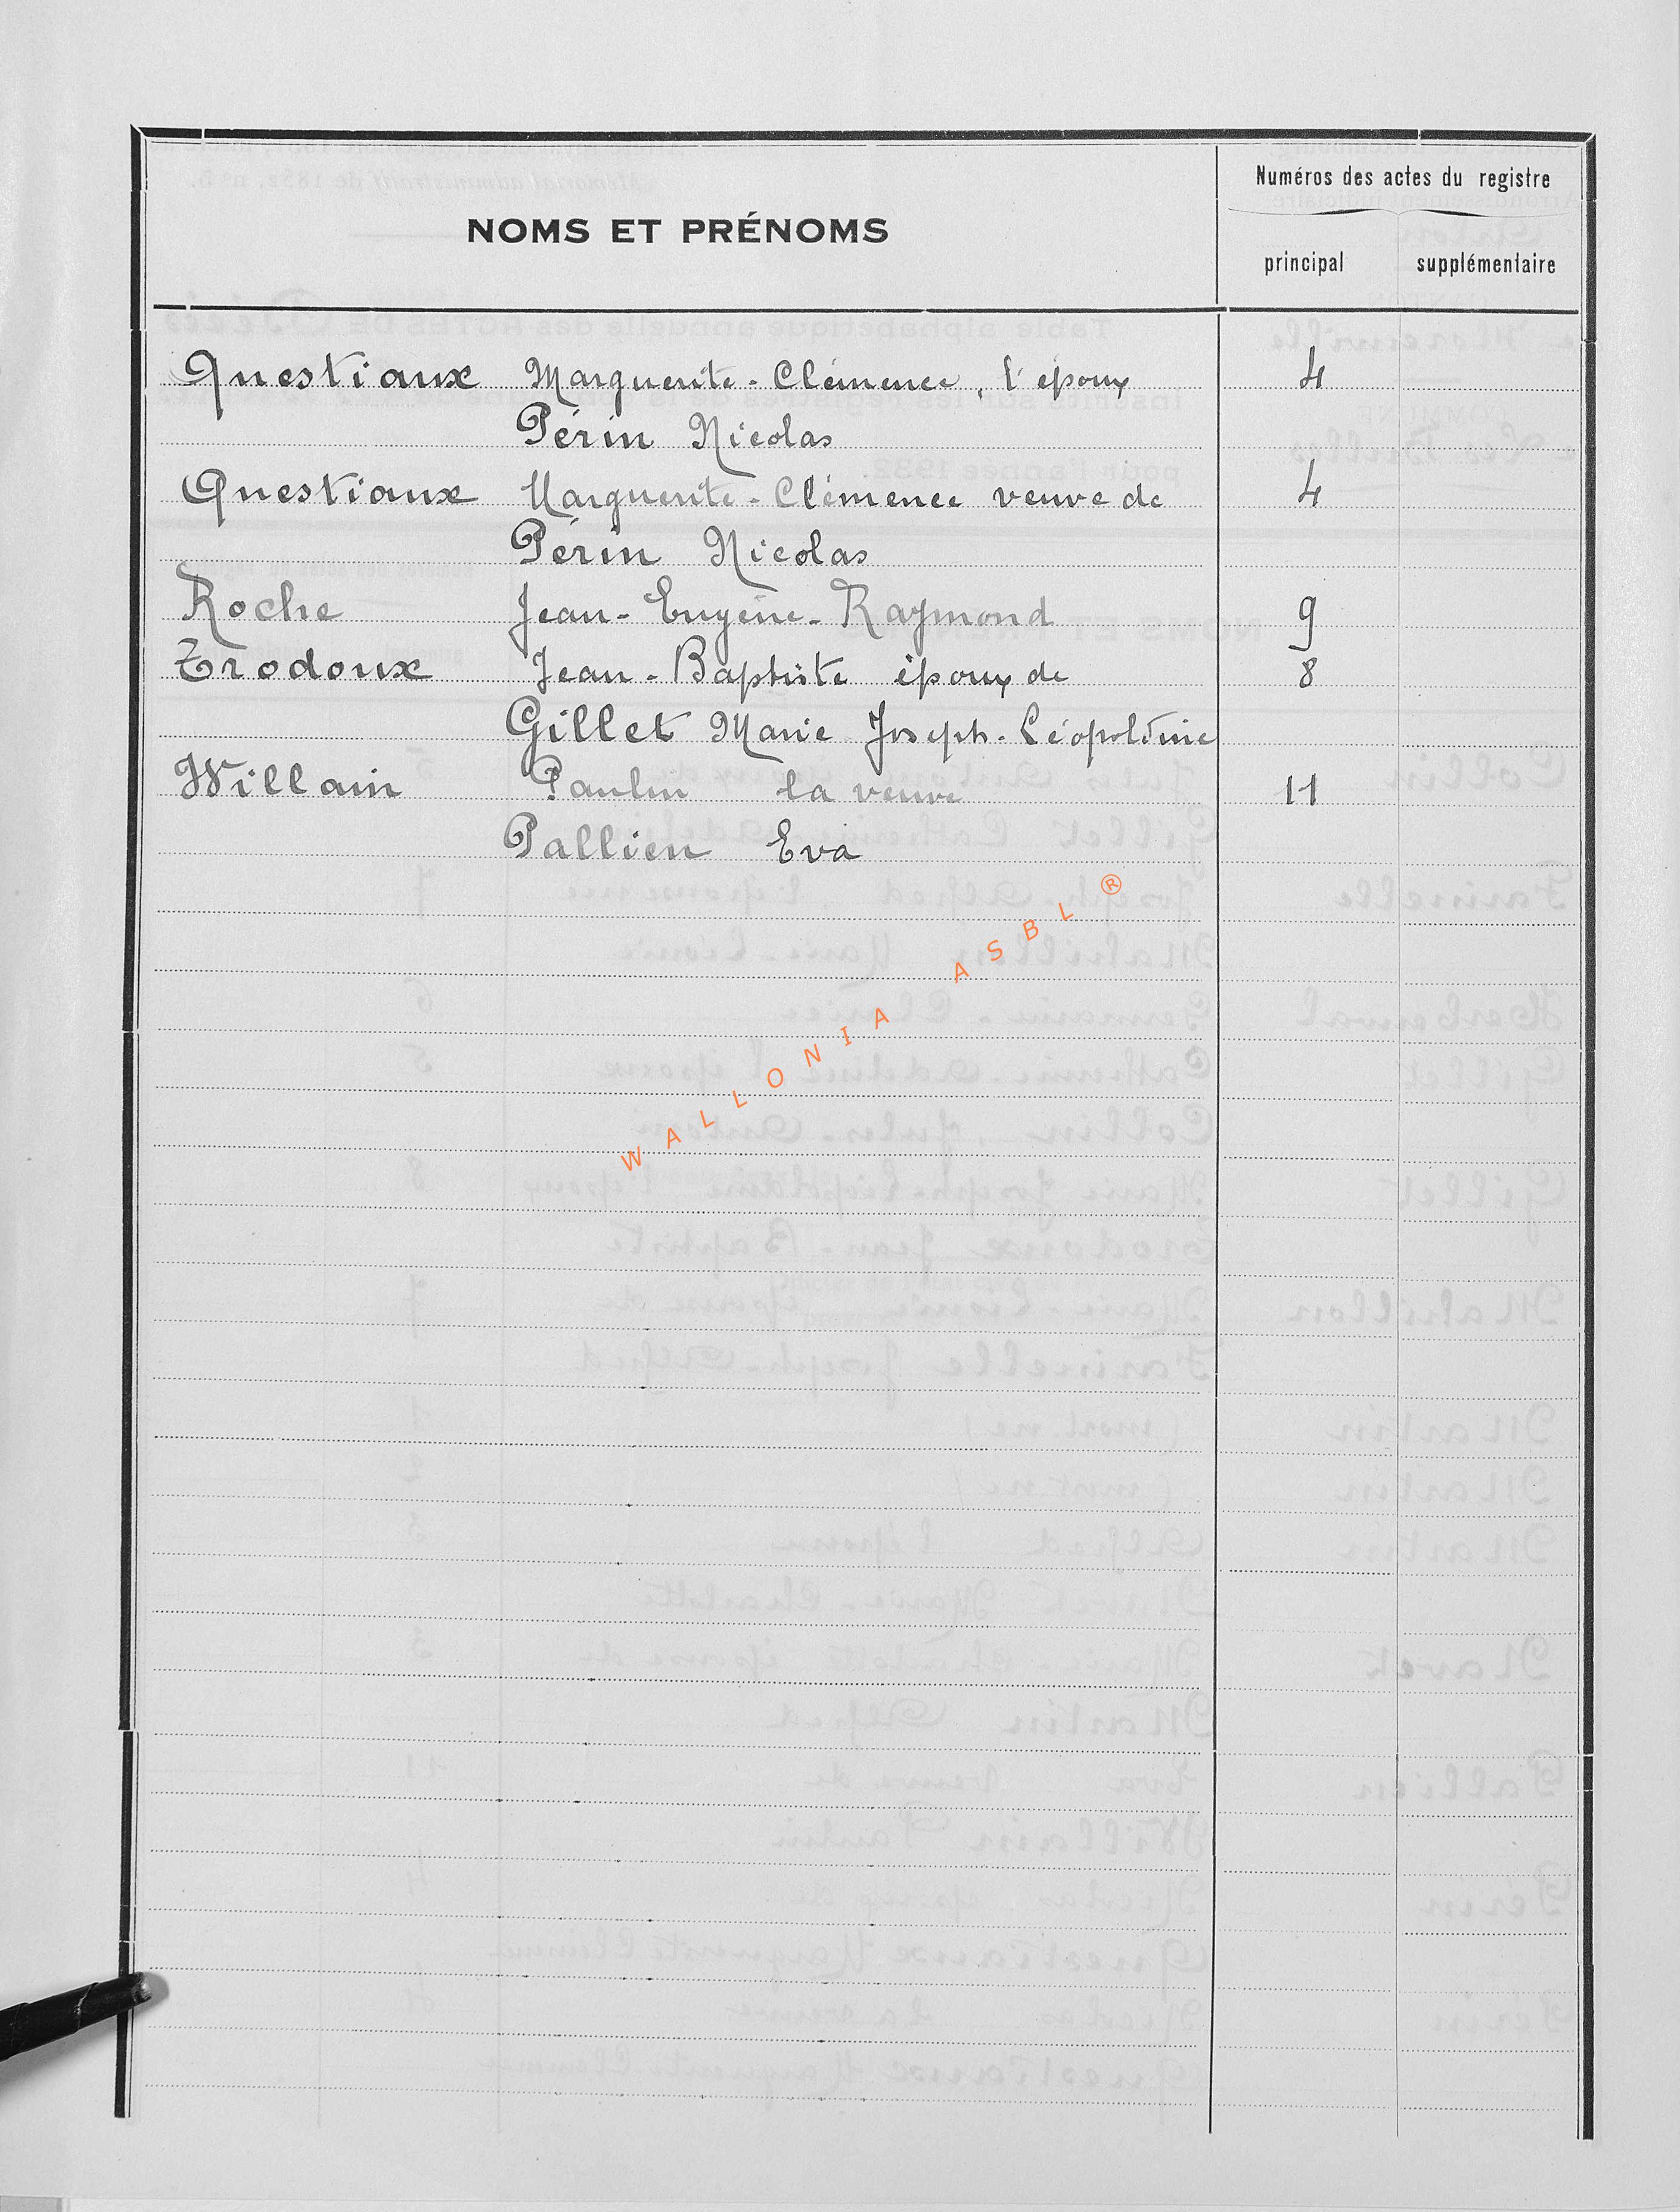 Numéros des actes du registre
NOMS ET PRÉNOMS
principal supplémentaire
Questiaux Marguerite - Clémence, l'époux 4
Périn Nicolas
Questiaux Marguerite - Clémence veuve de 4
Périn Nicolas
Roche Jean - Eugène - Raymond 9
Trodoux Jean - Baptiste époux de 8
Gillet Marie Joseph - Léopoldine
Willain Paulin la veuve 11
Pallien Eva
WALLONIA ASBL ®